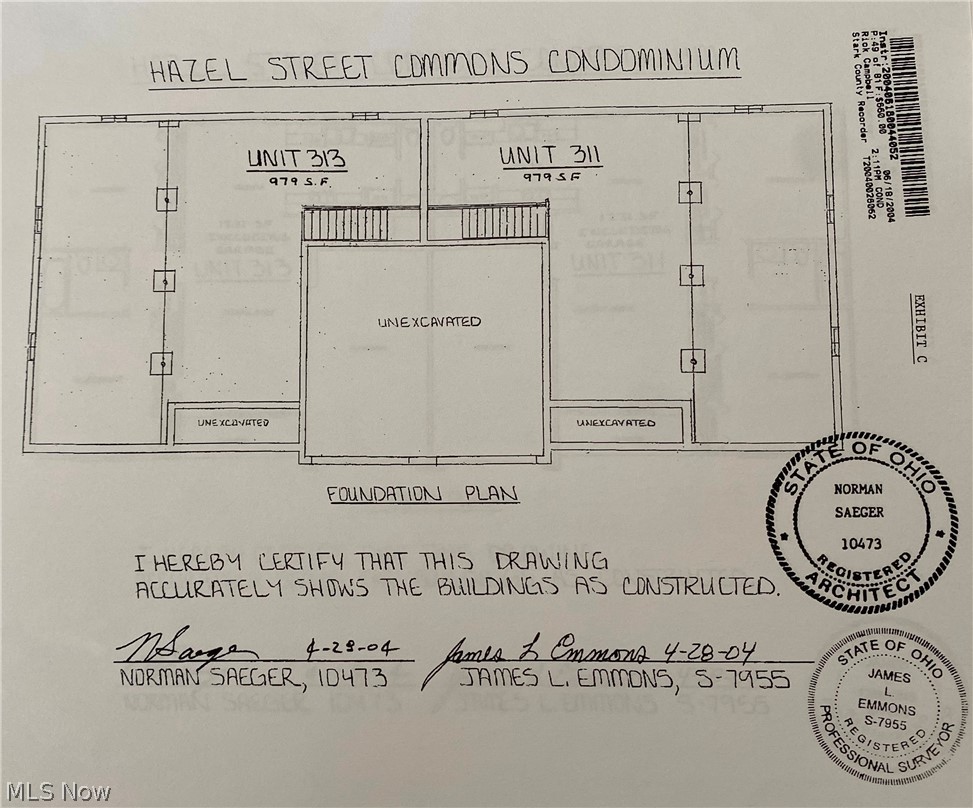 HAZEL STREET COMMONS CONDOMINIUM
Instr:200406180044052
P:49 of 81 F:$660.00
Rick Campbell
Stark County Recorder
06/18/2004
2:11PM COND
T20040028062
EXHIBIT C
UNIT 313
979 S.F.
UNIT 311
979 S.F
UNEXCAVATED
UNEXCAVATED
UNEXCAVATED
FOUNDATION PLAN
I HEREBY CERTIFY THAT THIS DRAWING
ACCURATELY SHOWS THE BUILDINGS AS CONSTRUCTED.
N Saeger 4-28-04
James L Emmons 4-28-04
NORMAN SAEGER, 10473
JAMES L. EMMONS, S-7955
STATE OF OHIO
NORMAN
SAEGER
10473
REGISTERED
ARCHITECT
STATE OF OHIO
JAMES
L.
EMMONS
S-7955
REGISTERED
PROFESSIONAL SURVEYOR
MLS Now